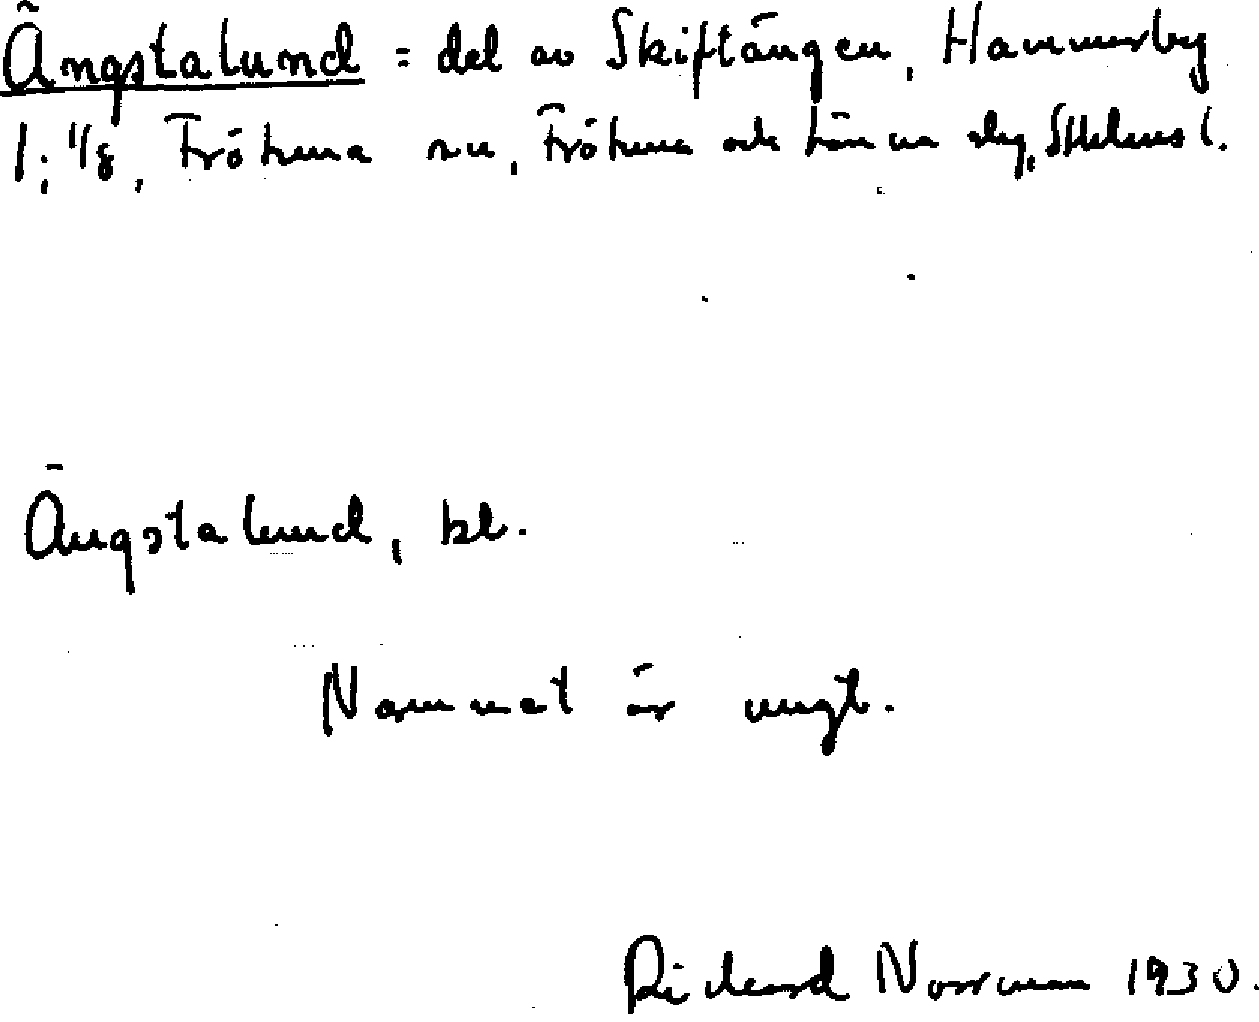 Ängstalund = del av Skiftängen, Hammerby
1:1/8, Frötuna sn, Frötuna och Länna slg, Sthlms l.
Ängstalund, bl.
Namnet är ungt.
Rickard Norrman 1930.